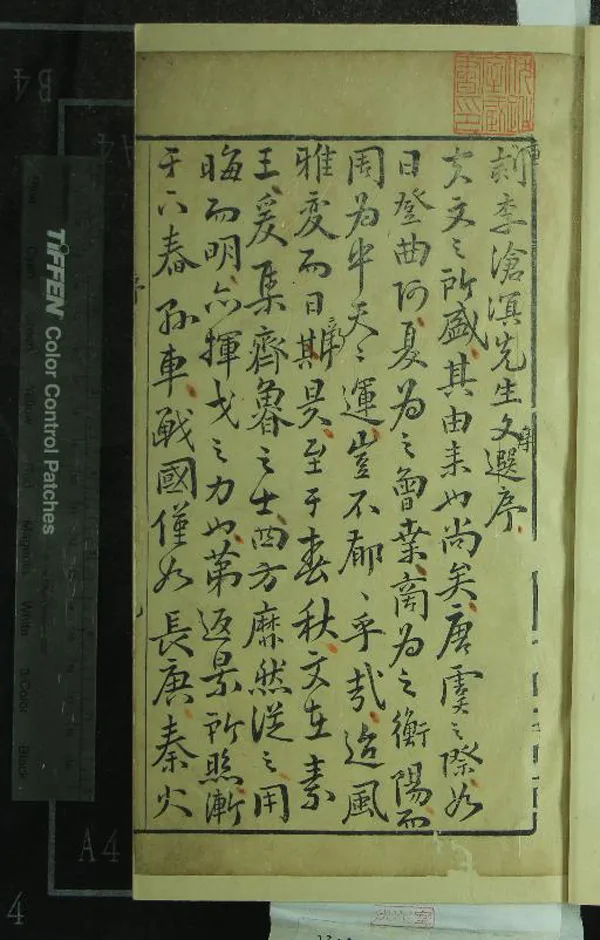 刻李滄溟先生文選序
夫文之所盛其由来也尚矣唐虞之際如
日登曲阿夏為之曾桑商為之衡陽而
周為中天之運豈不郁〻乎哉迨風
雅变而日昃至于春秋文在素
王爰集齊魯之士四方靡然從之用
晦而明亦揮戈之力也第返景所照漸
于下春車戰國僅如長庚秦火
序
TIFFEN Color Control Patches
Magenta
White
3/Color
Black
B4
A4
A4
4